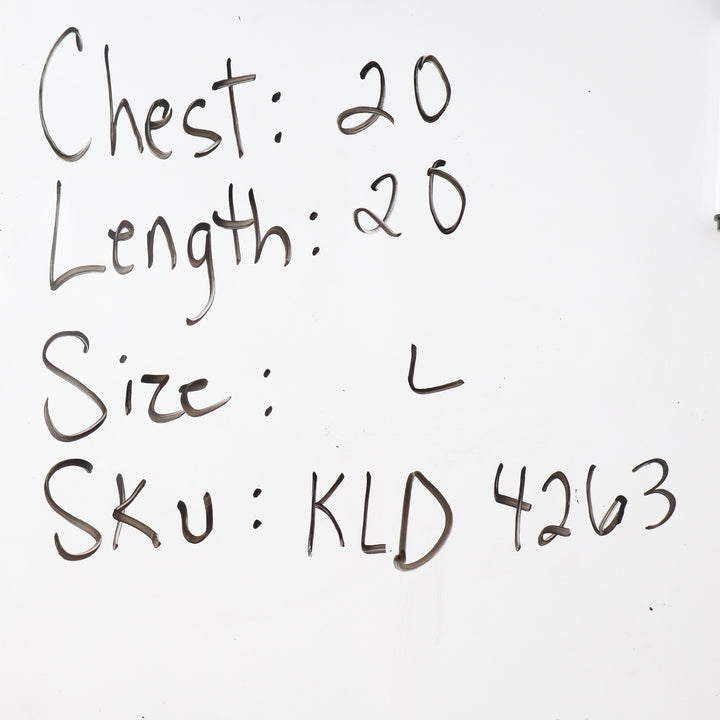 Chest: 20
Length: 20
Size: L
SKu: KLD 4263